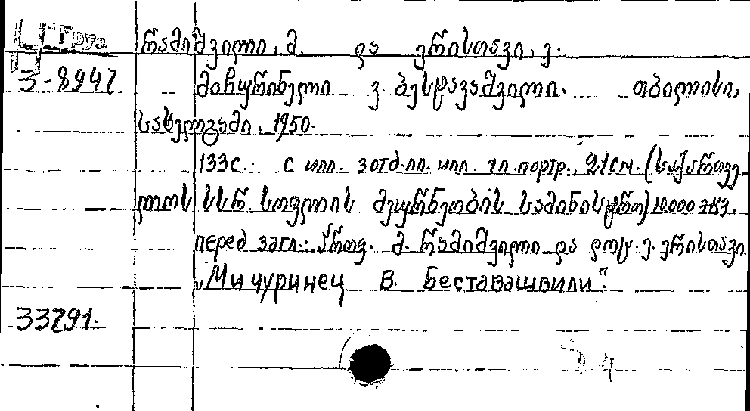 Груз
რამიშვილი, მ. და ერისთავი, ვ.
3-8947 მიჩურინელი ვ. ბესტავაშვილი. თბილისი,
სახელგამი, 1950.
133 с. с илл. 3 отд. лл. илл. 1 л. портр., 21 см. (საქართვე
ლოს სსრ. სოფლის მეურნეობის სამინისტრო) 10.000 экз.
перед загл.: მ. რამიშვილი და ვ. ერისთავი
„Мичуринец В. Беставашвили".
33291.